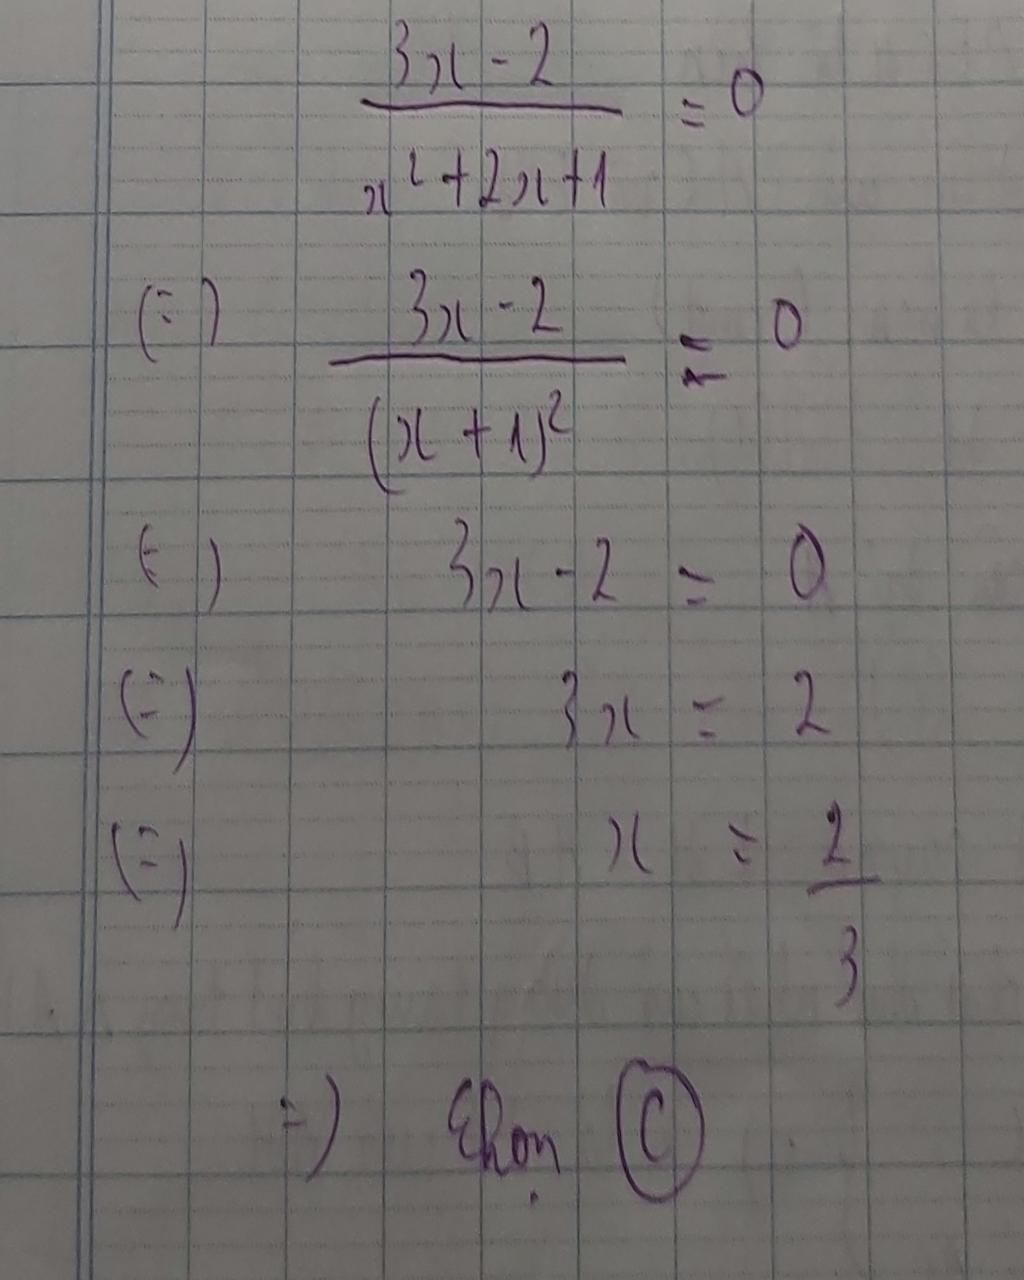 \frac{3x - 2}{x^2 + 2x + 1} = 0
(=) \frac{3x - 2}{(x + 1)^2} = 0
(=) 3x - 2 = 0
(=) 3x = 2
(=) x = \frac{2}{3}
=) Chọn C